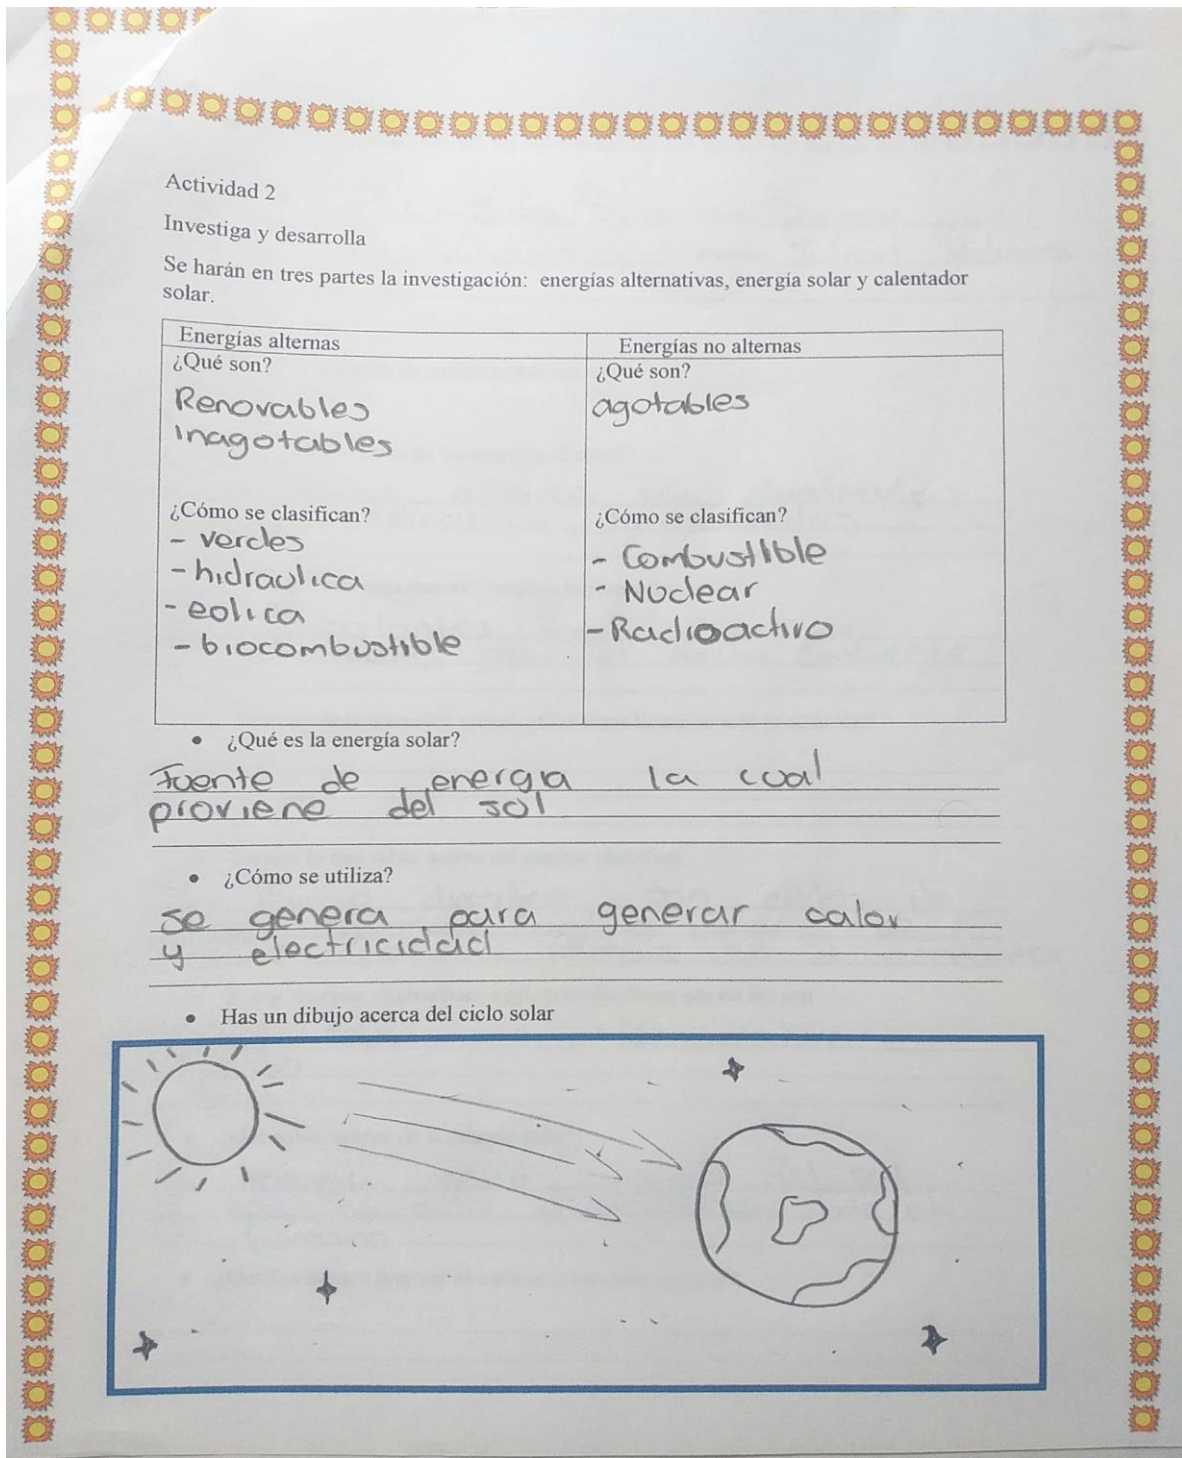 Actividad 2
Investiga y desarrolla
Se harán en tres partes la investigación: energías alternativas, energía solar y calentador
solar.
Energías alternas
¿Qué son?
Renovables
Inagotables
¿Cómo se clasifican?
- verdes
- hidraulica
- eolica
- biocombustible
Energías no alternas
¿Qué son?
agotables
¿Cómo se clasifican?
- Combustible
- Nuclear
- Radioactivo
• ¿Qué es la energía solar?
Fuente de energia la cual
proviene del sol
• ¿Cómo se utiliza?
se genera para generar calor
y electricidad
• Has un dibujo acerca del ciclo solar